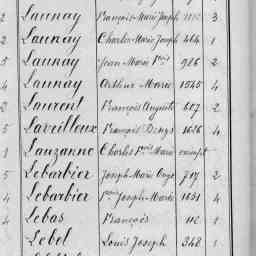 Launay François Marie Joseph 1112 3
2 Launay Charles Marie Joseph 464 1
5 Launay Jean Marie Fois 986 2
4 Launay Arthur Marie 1545 4
2 Laurent François Auguste 607 2
5 Laveilloux François Denys 1616 4
1 Lauzanne Charles Fois Marie exempt
2 Lebarbier Joseph Marie Ange 707 2
4 Lebarbier Fois Joseph Marie 1051 4
4 Lebas François 112 1
Lebel Louis Joseph 348 1